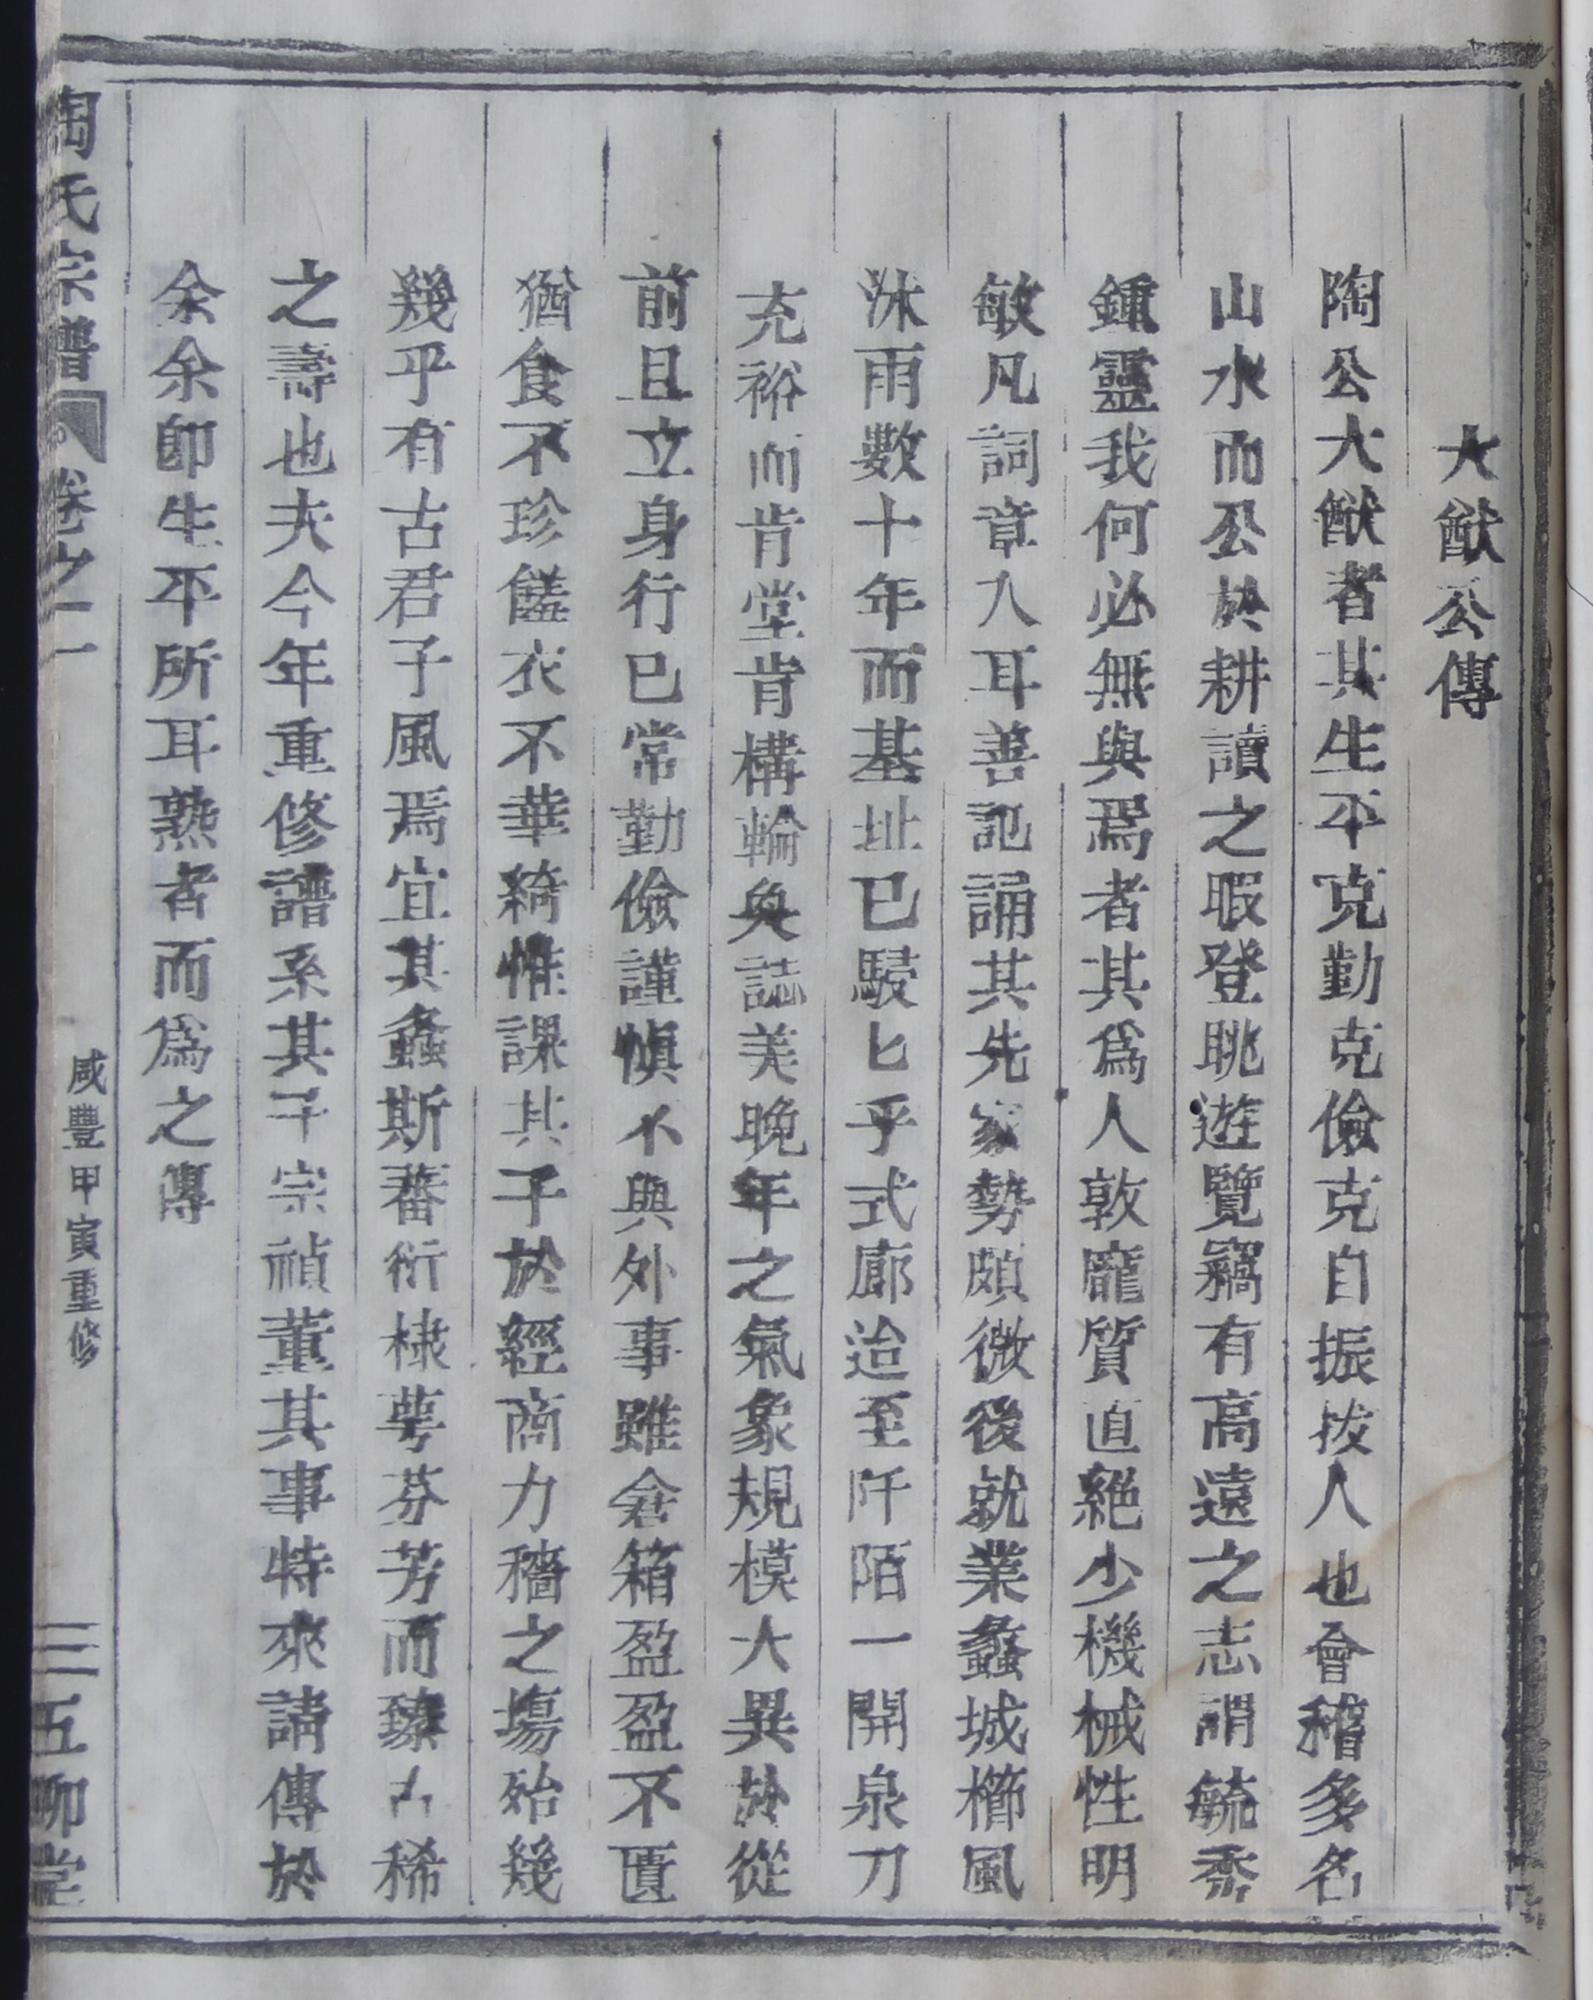 大猷公傳
陶公大猷者其生平克勤克儉克自振拔人也會稽多名
山水而公於耕讀之暇登眺遊覽竊有高遠之志謂毓秀
鍾靈我何必無與焉者其為人敦龐質直絕少機械性明
敏凡詞章入耳善記誦其先家勢頗微後就業蠡城櫛風
沐雨數十年而基址已駸匕乎式廓迨至阡陌一開泉刀
充裕而肯堂肯構輪奐誌美晚年之氣象規模大異於從
前且立身行已常勤儉謹慎不與外事雖倉箱盈盈不匱
猶食不珍饈衣不華綺惟課其子於經商力穡之塲殆幾
幾乎有古君子風焉宜其螽斯蕃衍棣萼芬芳而臻古稀
之壽也夫今年重修譜系其子宗禎董其事特來請傳於
余余即生平所耳熟者而為之傳
陶氏宗譜 卷之一 咸豐甲寅重修 三 五柳堂